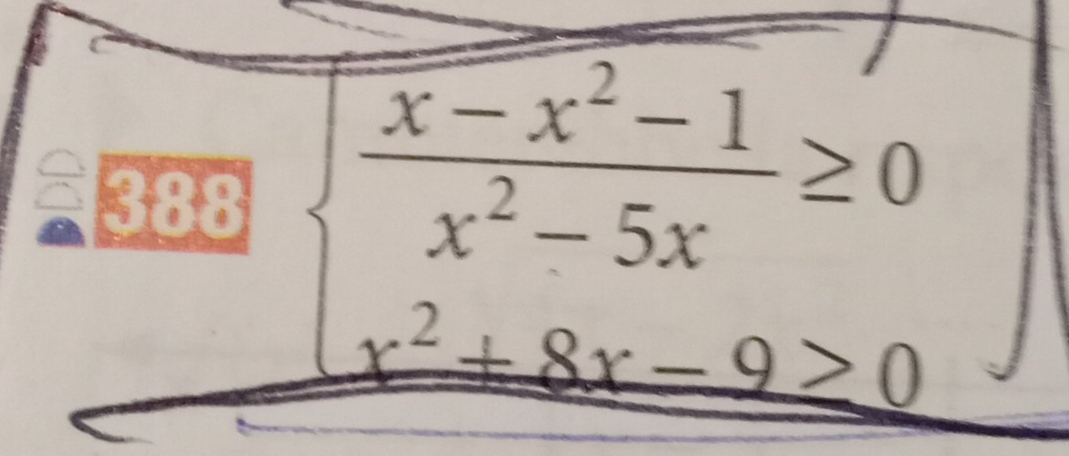 388
x − x² − 1
x² − 5x
≥ 0
x² + 8x − 9 > 0